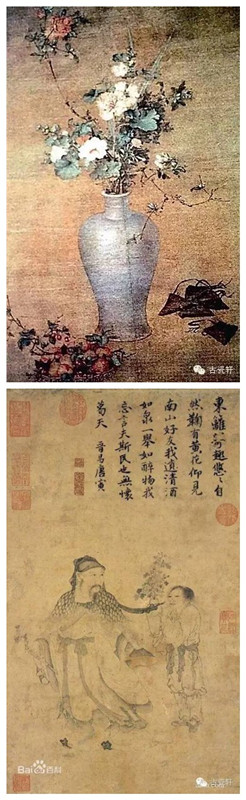 古瓷轩
東籬寄趣悠々自
然鞠有黄花仰見
南山好友我遺清酒
如泉一舉如醉物我
忘言夫斯民也無懷
葛天 晉昌唐寅
Bai百科
古瓷轩